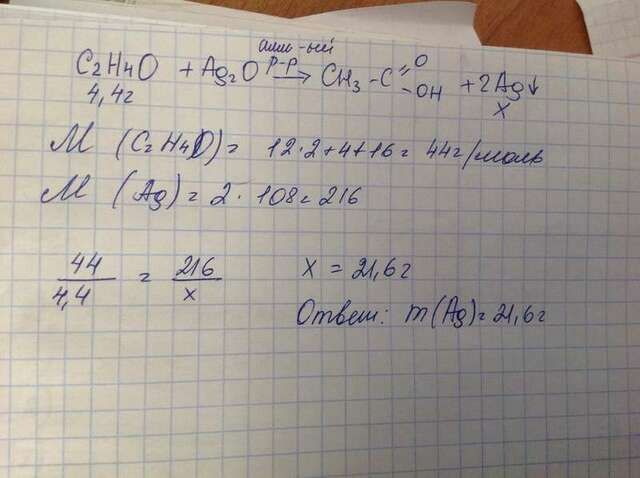 амм-ый
C2H4O + Ag2O р-р→ CH3-C=O-OH + 2Ag↓
4,4г x
M (C2H4O) = 12·2+4+16 = 44г/моль
M (Ag) = 2·108 = 216
44/4,4 = 216/x x = 21,6г
Ответ: m(Ag) = 21,6г